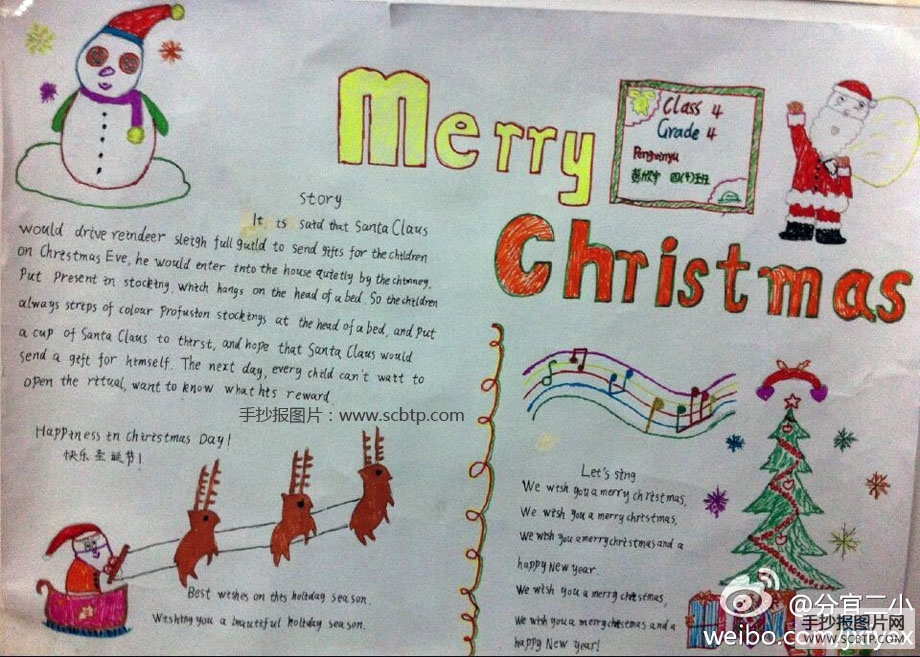 Merry
Christmas
Class 4
Grade 4
四(4)班
Story
It is said that Santa Claus
would drive reindeer sleigh full guild to send gifts for the children
on Christmas Eve, he would enter into the house quietly by the chimney,
Put Present in stocking, which hangs on the head of a bed. So the children
always strips of colour Profusion stockings at the head of a bed, and put
a cup of Santa Claus to thirst, and hope that Santa Claus would
send a gift for himself. The next day, every child can't wait to
open the ritual, want to know what his reward
手抄报图片：www.scbtp.com
Happiness in christmas Day!
快乐圣诞节!
Best wishes on this holiday season.
Wishing you a beautiful holiday season.
Let's sing
We wish you a merry christmas,
We wish you a merry christmas,
We wish you a merry christmas and a
happy New year.
We wish you a merry christmas,
We wish you a merry christmas and a
happy New year!
@分宜二小
手抄报图片网
www.SCBTP.COM